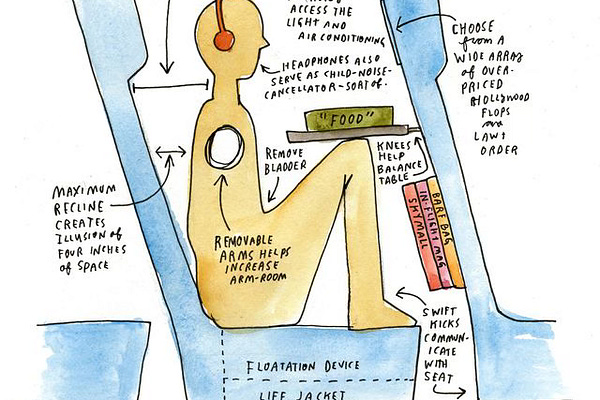 ACCESS THE
LIGHT AND
AIR CONDITIONING
HEADPHONES ALSO
SERVE AS CHILD-NOISE-
CANCELLATOR-SORT OF.
CHOOSE
FROM A
WIDE ARRAY
OF OVER-
PRICED
HOLLYWOOD
FLOPS
AND
LAW &
ORDER
"FOOD"
KNEES
HELP
BALANCE
TABLE
REMOVE
BLADDER
MAXIMUM
RECLINE
CREATES
ILLUSION OF
FOUR INCHES
OF SPACE
REMOVABLE
ARMS HELPS
INCREASE
ARM-ROOM
SKYMALL
IN-FLIGHT MAG
BARF BAG
SWIFT
KICKS
COMMUN-
ICATE
WITH
SEAT
FLOATATION DEVICE
LIFE JACKET